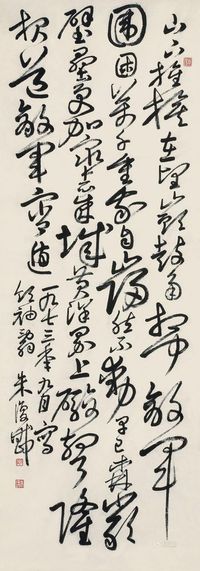 山下旌旗在望山頭鼓角相聞敵軍
圍困萬千重我自巋然不動早已森嚴
壁壘更加眾志成城黃洋界上礮聲隆
報道敵軍宵遁 一九七三年九月寫
領袖 朱復戡